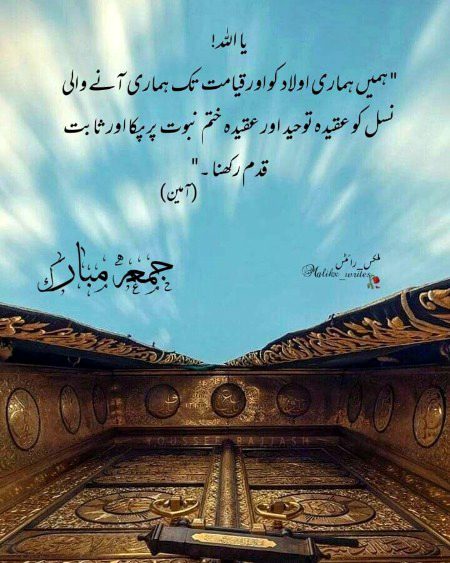 یا اللہ!
"ہمیں ہماری اولاد کو اور قیامت تک ہماری آنے والی
نسل کو عقیدہ توحید اور عقیدہ ختم نبوت پر پکا اور ثابت
قدم رکھنا۔"
(آمین)
جمعہ مبارک
ملکس_رائٹس
@Maliks_writes
YOUSSEF BAJJASH